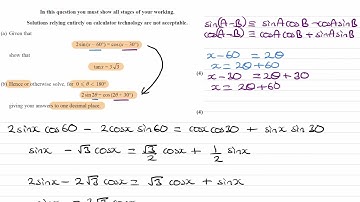 In this question you must show all stages of your working.
Solutions relying entirely on calculator technology are not acceptable.
(a) Given that
2 sin(x − 60°) = cos(x − 30°)
show that
tan x = 3√3
(4)
(b) Hence or otherwise solve, for 0 < θ < 180°
2 sin 2θ = cos(2θ + 30°)
giving your answers to one decimal place.
(4)
sin(A−B) ≡ sinAcosB − cosAsinB
cos(A−B) ≡ cosAcosB + sinAsinB
x − 60 = 2θ
x = 2θ + 60
x − 30 = 2θ + 30
x = 2θ + 60
2sinx cos60 − 2cosx sin60 = cosx cos30 + sinx sin30
sinx − √3 cosx = √3/2 cosx + 1/2 sinx
2sinx − 2√3 cosx = √3 cosx + sinx